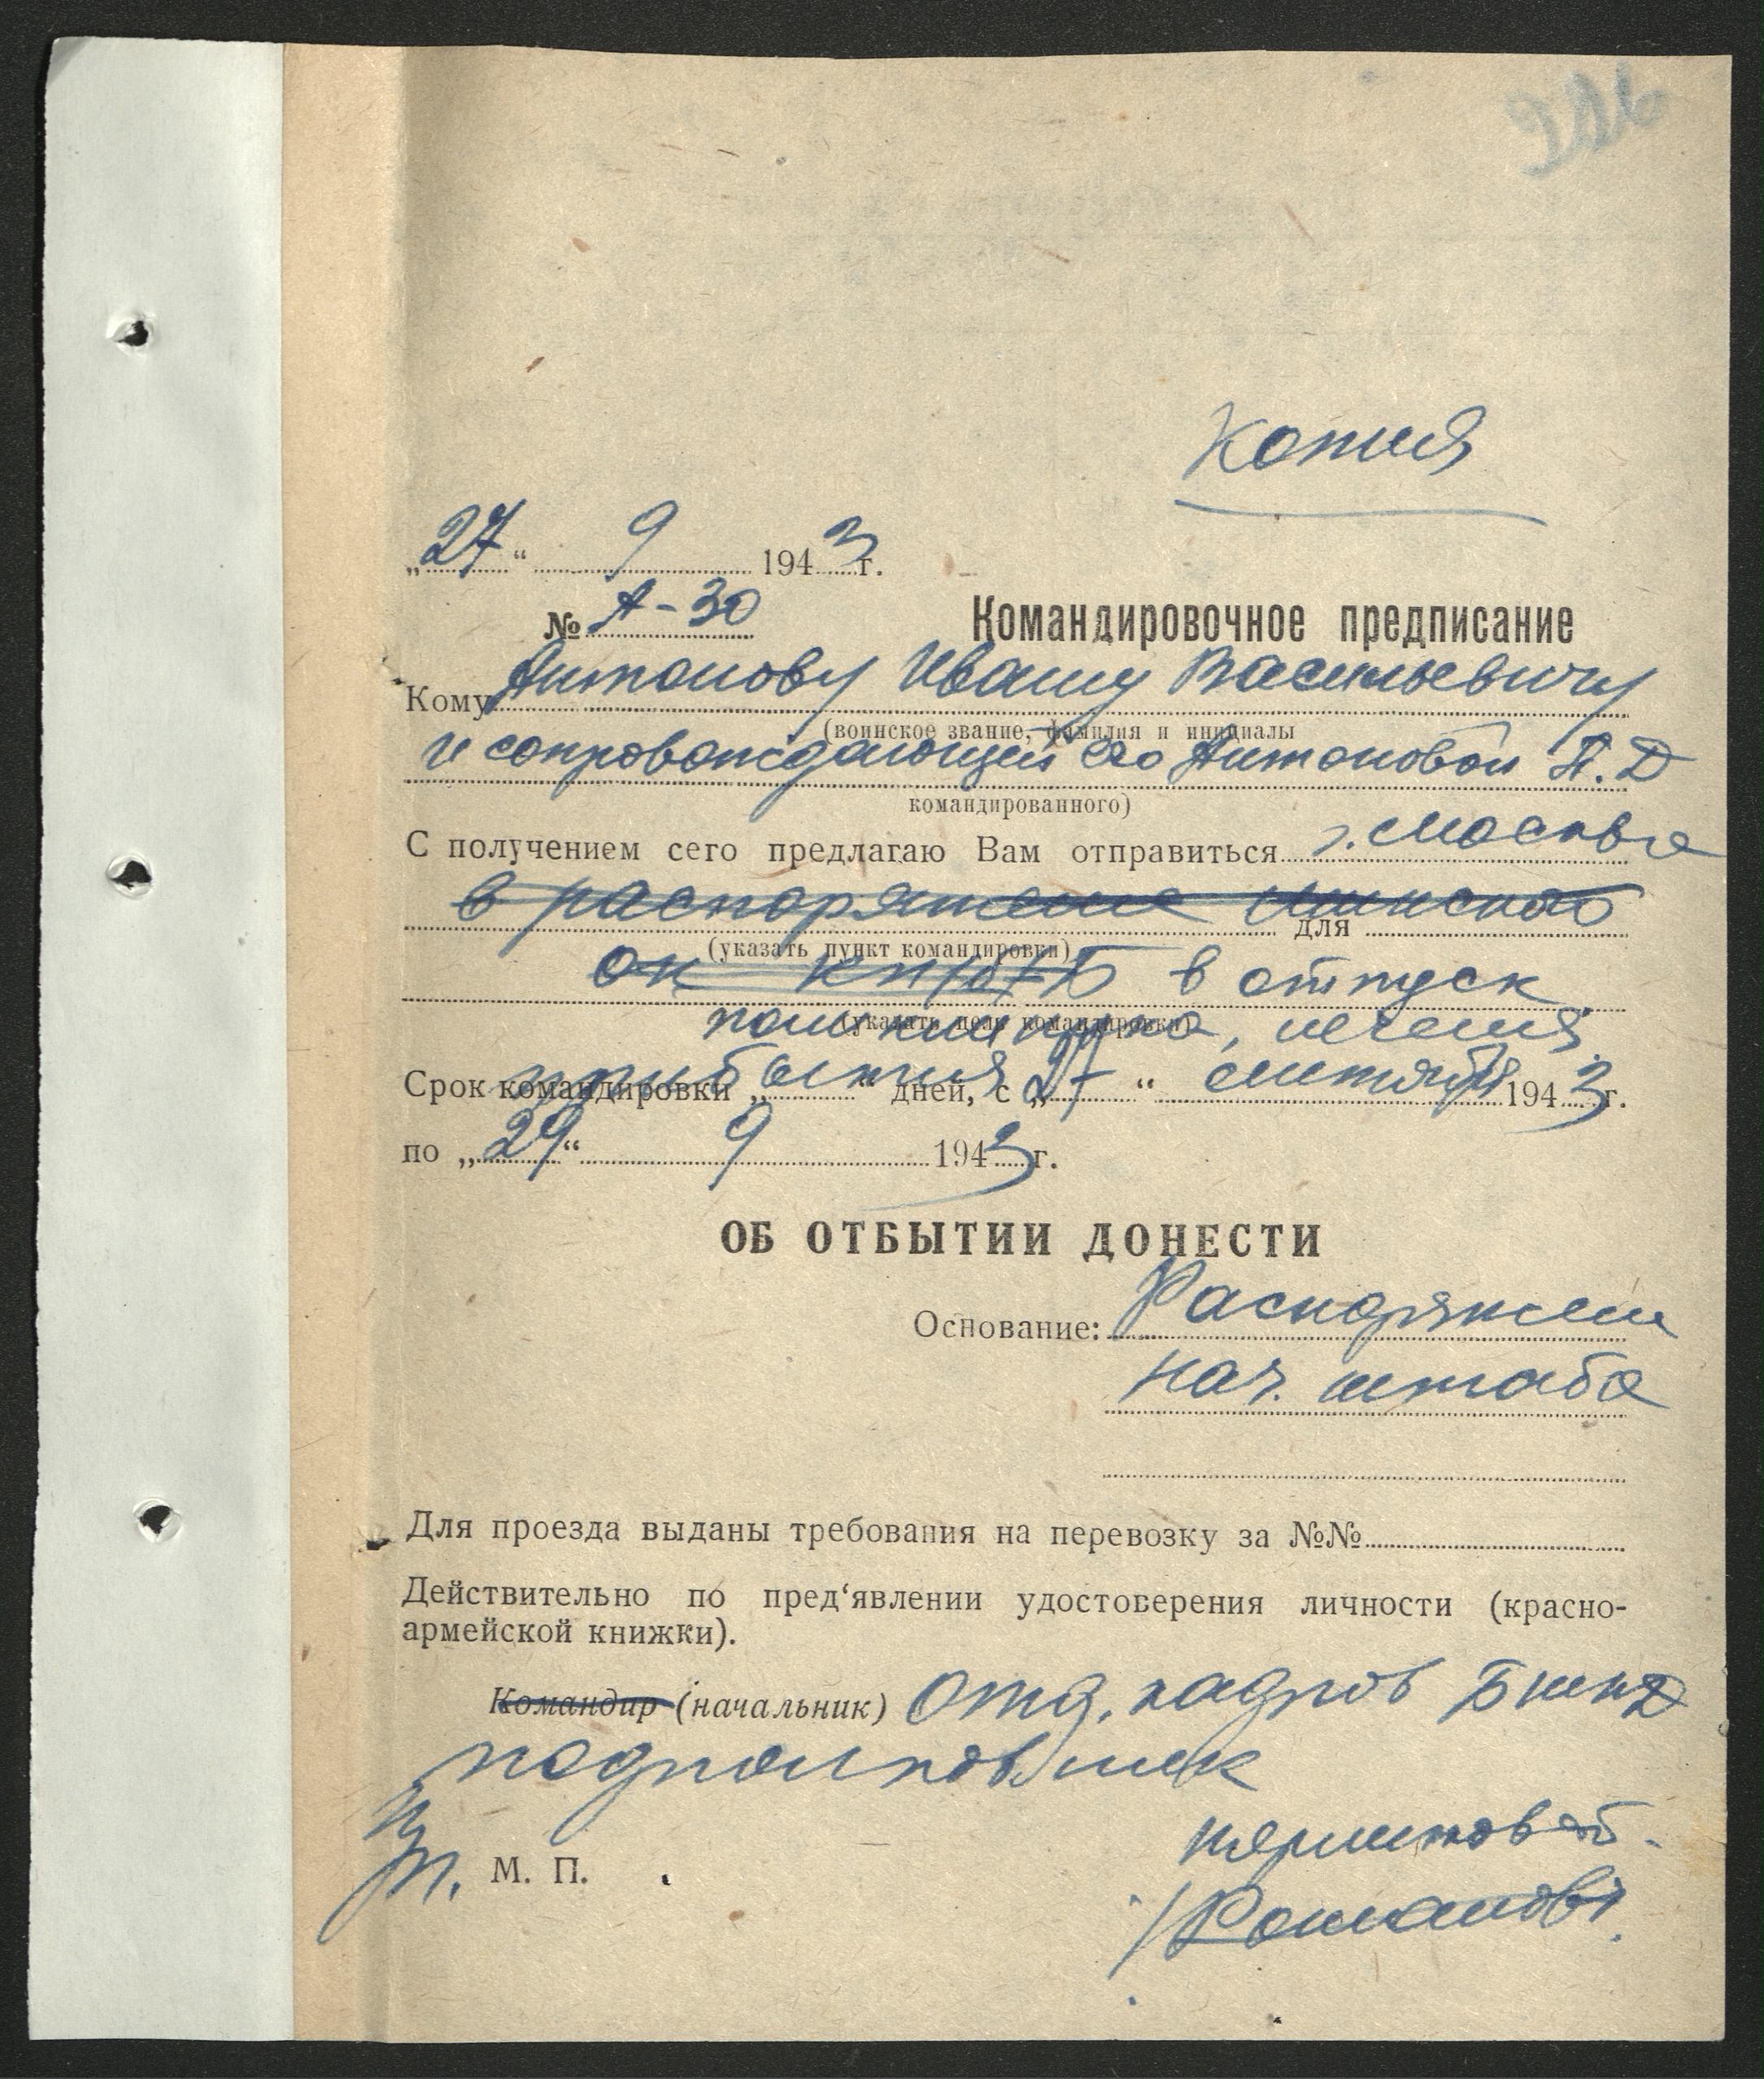 226
Копия
„27“ 9 1943 г.
№ А-30 Командировочное предписание
Кому Антонову Ивану Васильевичу
(воинское звание, фамилия и инициалы
и сопровождающей его Антоновой П. Д
командированного)
С получением сего предлагаю Вам отправиться г. Москва
в распоряжение Минского для
(указать пункт командировки)
ок КП(б)Б в отпуск
(указать цель командировки)
лечения
прибытия
Срок командировки „ “ дней, с „27“ сентября 1943 г.
по „29“ 9 1943 г.
ОБ ОТБЫТИИ ДОНЕСТИ
Основание: Распоряжен
нач. штаба
Для проезда выданы требования на перевозку за №№
Действительно по пред‘явлении удостоверения личности (красно-
армейской книжки).
Командир (начальник) Отд. кадров БШПД
подполковник
М. П.
/Романов/